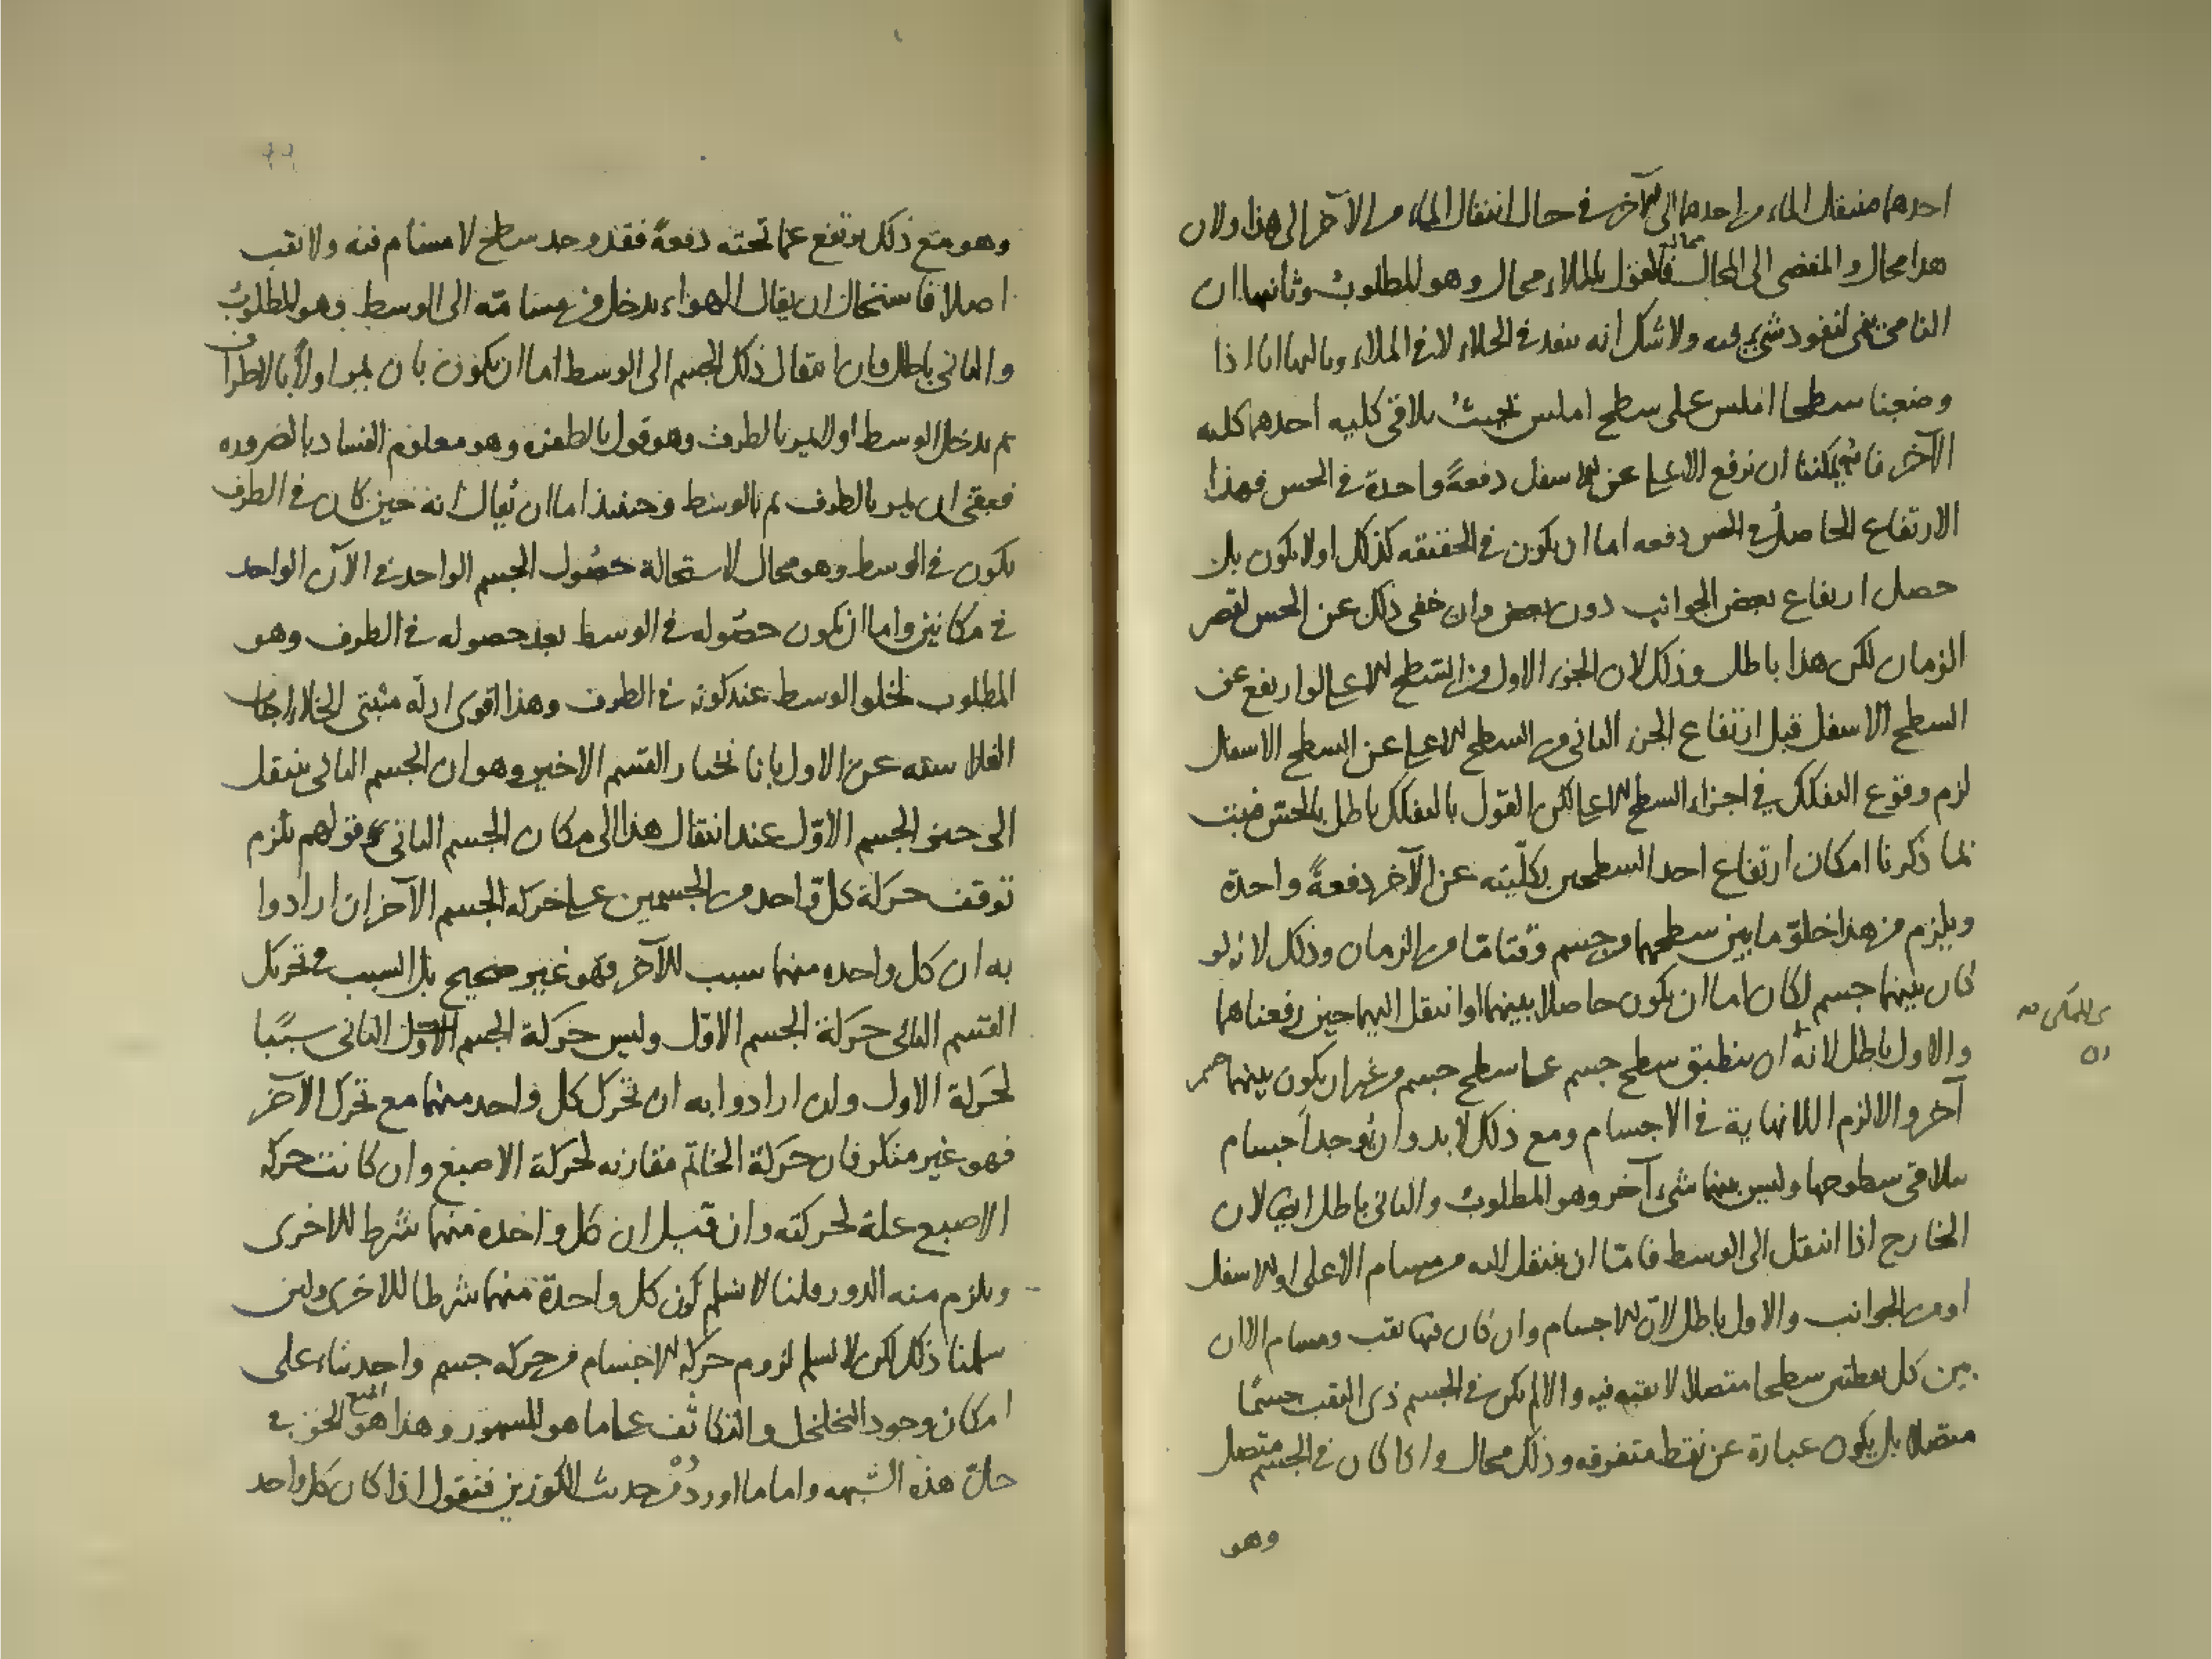 احدهما منتقل الماء من احدهما الى الآخر في حال انتقال الماء من الآخر الى هذا ولان
هذا محال والمفضي الى المحال محال فالقول بالملاء محال وهو المطلوب وثانيها ان
النامي ينمى لنفوذ شيء فيه ولا شك انه ينفذ في الخلاء لا في الملاء وثالثها انا اذا
وضعنا سطحا املس على سطح املس بحيث يلاقي كليه احدهما كليه
الآخر فانه يمكننا ان نرفع الاعلى عن الاسفل دفعةً واحدة في الحس فهذا
الارتفاع الحاصل في الحس دفعه اما ان يكون في الحقيقه كذلك او لا يكون بل
حصل ارتفاع بعض الجوانب دون بعض وان خفى ذلك عن الحس لقصر
الزمان لكن هذا باطل وذلك لان الجزء الاول من السطح الاعلى لو ارتفع عن
السطح الاسفل قبل ارتفاع الجزء الثاني من السطح الاعلى عن السطح الاسفل
لزم وقوع التفكك في اجزاء السطح الاعلى لكن القول بالتفكك باطل بالحس فثبت
بما ذكرنا امكان ارتفاع احد السطحين بكلّيته عن الآخر دفعةً واحدة
ويلزم من هذا خلوّ ما بين سطحيهما من جسم وقتا مّا من الزمان وذلك لانه لو
كان بينهما جسم لكان اما ان يكون حاصلا بينهما او انتقل اليهما حين رفعناهما
والاول باطل لانه ان ينطبق سطح جسم على سطح جسم من غير ان يكون بينهما جسم
آخر والا لزم اللانهاية في الاجسام ومع ذلك لا بد وان يوجد اجسام
تتلاقى سطوحها وليس بينهما شيء آخر وهو المطلوب والثاني باطل ايضا لان
الخارج اذا انتقل الى الوسط فامّا ان ينتقل اليه من مسام الاعلى او الاسفل
او من الجوانب والاول باطل لانّ الاجسام وان كان فيها ثقب ومسام الا ان
بين كل ثقبتين سطحا متصلا لا ثقبه فيه والا لم يكن في الجسم ذي الثقب جسمًا
متصلا بل يكون عبارة عن نقط متفرقه وذلك محال واذا كان في الجسم متصل
وهو
وهو مع ذلك يرتفع عما تحته دفعةً فقد وجد سطح لا مسام فيه ولا ثقب
اصلا فاستحال ان يقال الهواء يدخل من مسامّه الى الوسط وهو المطلوب
والثاني باطل فان انتقال ذلك الجسم الى الوسط اما ان يكون بان يمر اولا بالاطراف
ثم يدخل الوسط او لا يمر بالطرف وهو قول بالطفره وهو معلوم الفساد بالضروره
فبقي ان يمر بالطرف ثم بالوسط وحينئذ اما ان يُقال انه حين كان في الطرف
يكون في الوسط وهو محال لاستحالة حصُول الجسم الواحد في الآن الواحد
في مكانين واما ان يكون حصُوله في الوسط بعد حصوله في الطرف وهو
المطلوب لخلو الوسط عند كونه في الطرف وهذا اقوى ادله مثبتي الخلاء اجاب
الفلاسفه عن الاول بانا نختار القسم الاخير وهو ان الجسم الثاني ينتقل
الى حيز الجسم الاوّل عند انتقال هذا الى مكان الجسم الثاني وقولهم يلزم
توقف حركة كل واحد من الجسمين على حركه الجسم الآخر ان ارادوا
به ان كل واحده منهما سبب للآخر فهو غير صحيح بل السبب في تحريك
القسم الثاني حركة الجسم الاوّل وليس حركة الجسم الثاني سببًا
لحركة الاول وان ارادوا به ان تحرك كل واحد منهما مع تحرك الآخر
فهو غير منكر فان حركة الخاتم مقارنه لحركة الاصبع وان كانت حركه
الاصبع علة لحركته وان قيل ان كل واحدة منهما شرط للاخرى
ويلزم منه الدور قلنا لا نسلم كون كل واحدة منهما شرطا للاخرى ولئن
سلمنا ذلك لكن لا نسلم لزوم حركه الاجسام من حركه جسم واحد بناء على
امكان وجود التخلخل والتكاثف على ما هو المشهور وهذا هو الحق في
حلّ هذه الشبهه واما ما اوردوه من حديث الكوزين فنقول اذا كان كل واحد